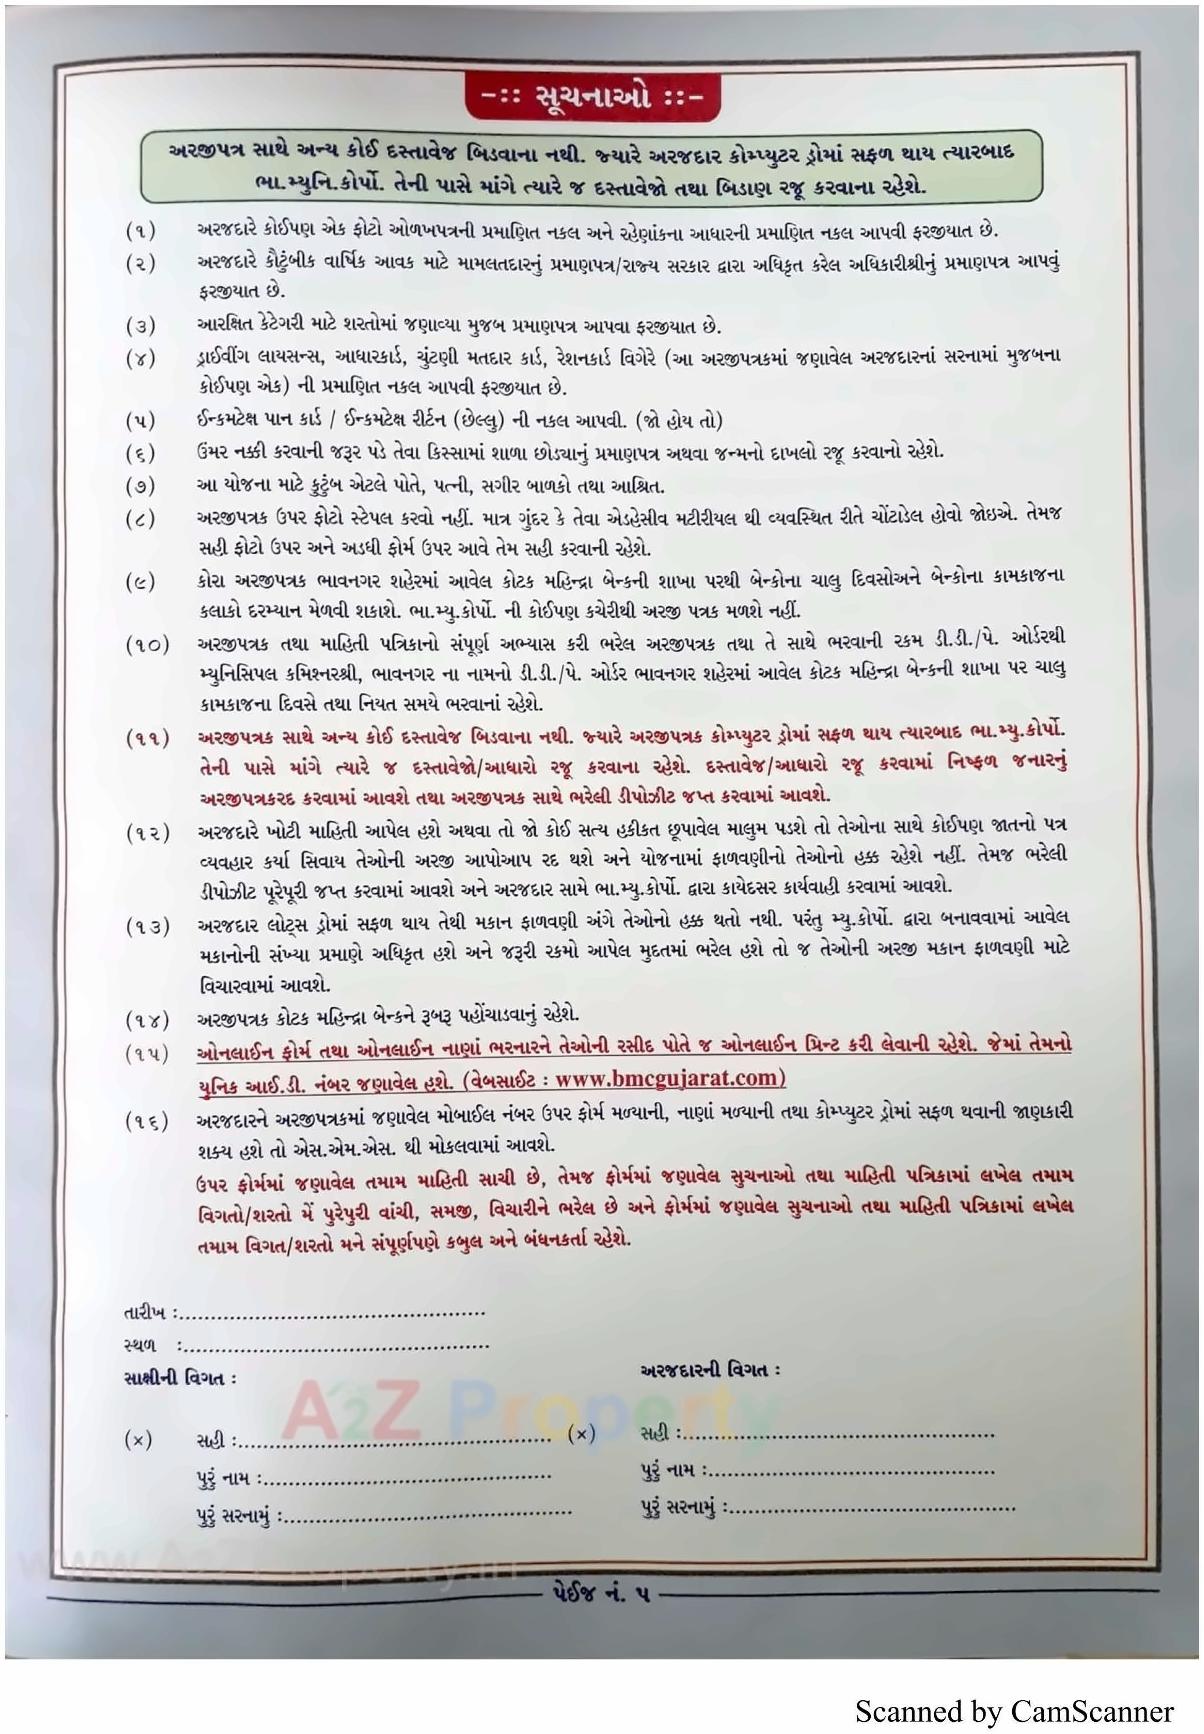 -:: સૂચનાઓ ::-
અરજીપત્ર સાથે અન્ય કોઈ દસ્તાવેજ બિડવાના નથી. જ્યારે અરજદાર કોમ્પ્યુટર ડ્રોમાં સફળ થાય ત્યારબાદ
ભા.મ્યુનિ.કોર્પો. તેની પાસે માંગે ત્યારે જ દસ્તાવેજો તથા બિડાણ રજૂ કરવાના રહેશે.
(૧) અરજદારે કોઈપણ એક ફોટો ઓળખપત્રની પ્રમાણિત નકલ અને રહેણાંકના આધારની પ્રમાણિત નકલ આપવી ફરજીયાત છે.
(૨) અરજદારે કૌટુંબીક વાર્ષિક આવક માટે મામલતદારનું પ્રમાણપત્ર/રાજ્ય સરકાર દ્વારા અધિકૃત કરેલ અધિકારીશ્રીનું પ્રમાણપત્ર આપવું
ફરજીયાત છે.
(૩) આરક્ષિત કેટેગરી માટે શરતોમાં જણાવ્યા મુજબ પ્રમાણપત્ર આપવા ફરજીયાત છે.
(૪) ડ્રાઈવીંગ લાયસન્સ, આધારકાર્ડ, ચુંટણી મતદાર કાર્ડ, રેશનકાર્ડ વિગેરે (આ અરજીપત્રકમાં જણાવેલ અરજદારનાં સરનામાં મુજબના
કોઈપણ એક) ની પ્રમાણિત નકલ આપવી ફરજીયાત છે.
(૫) ઈન્કમટેક્ષ પાન કાર્ડ / ઈન્કમટેક્ષ રીર્ટન (છેલ્લુ) ની નકલ આપવી. (જો હોય તો)
(૬) ઉંમર નક્કી કરવાની જરૂર પડે તેવા કિસ્સામાં શાળા છોડ્યાનું પ્રમાણપત્ર અથવા જન્મનો દાખલો રજૂ કરવાનો રહેશે.
(૭) આ યોજના માટે કુટુંબ એટલે પોતે, પત્ની, સગીર બાળકો તથા આશ્રિત.
(૮) અરજીપત્રક ઉપર ફોટો સ્ટેપલ કરવો નહીં. માત્ર ગુંદર કે તેવા એડહેસીવ મટીરીયલ થી વ્યવસ્થિત રીતે ચોંટાડેલ હોવો જોઇએ. તેમજ
સહી ફોટો ઉપર અને અડધી ફોર્મ ઉપર આવે તેમ સહી કરવાની રહેશે.
(૯) કોરા અરજીપત્રક ભાવનગર શહેરમાં આવેલ કોટક મહિન્દ્રા બેન્કની શાખા પરથી બેન્કોના ચાલુ દિવસોઅને બેન્કોના કામકાજના
કલાકો દરમ્યાન મેળવી શકાશે. ભા.મ્યુ.કોર્પો. ની કોઈપણ કચેરીથી અરજી પત્રક મળશે નહીં.
(૧૦) અરજીપત્રક તથા માહિતી પત્રિકાનો સંપૂર્ણ અભ્યાસ કરી ભરેલ અરજીપત્રક તથા તે સાથે ભરવાની રકમ ડી.ડી./પે. ઓર્ડરથી
મ્યુનિસિપલ કમિશ્નરશ્રી, ભાવનગર ના નામનો ડી.ડી./પે. ઓર્ડર ભાવનગર શહેરમાં આવેલ કોટક મહિન્દ્રા બેન્કની શાખા પર ચાલુ
કામકાજના દિવસે તથા નિયત સમયે ભરવાનાં રહેશે.
(૧૧) અરજીપત્રક સાથે અન્ય કોઈ દસ્તાવેજ બિડવાના નથી. જ્યારે અરજીપત્રક કોમ્પ્યુટર ડ્રોમાં સફળ થાય ત્યારબાદ ભા.મ્યુ.કોર્પો.
તેની પાસે માંગે ત્યારે જ દસ્તાવેજો/આધારો રજૂ કરવાના રહેશે. દસ્તાવેજ/આધારો રજૂ કરવામાં નિષ્ફળ જનારનું
અરજીપત્રકરદ કરવામાં આવશે તથા અરજીપત્રક સાથે ભરેલી ડીપોઝીટ જપ્ત કરવામાં આવશે.
(૧૨) અરજદારે ખોટી માહિતી આપેલ હશે અથવા તો જો કોઈ સત્ય હકીકત છૂપાવેલ માલુમ પડશે તો તેઓના સાથે કોઈપણ જાતનો પત્ર
વ્યવહાર કર્યા સિવાય તેઓની અરજી આપોઆપ રદ થશે અને યોજનામાં ફાળવણીનો તેઓનો હક્ક રહેશે નહીં. તેમજ ભરેલી
ડીપોઝીટ પૂરેપૂરી જપ્ત કરવામાં આવશે અને અરજદાર સામે ભા.મ્યુ.કોર્પો. દ્વારા કાયેદસર કાર્યવાહી કરવામાં આવશે.
(૧૩) અરજદાર લોટ્સ ડ્રોમાં સફળ થાય તેથી મકાન ફાળવણી અંગે તેઓનો હક્ક થતો નથી. પરંતુ મ્યુ.કોર્પો. દ્વારા બનાવવામાં આવેલ
મકાનોની સંખ્યા પ્રમાણે અધિકૃત હશે અને જરૂરી રકમો આપેલ મુદતમાં ભરેલ હશે તો જ તેઓની અરજી મકાન ફાળવણી માટે
વિચારવામાં આવશે.
(૧૪) અરજીપત્રક કોટક મહિન્દ્રા બેન્કને રૂબરૂ પહોંચાડવાનું રહેશે.
(૧૫) ઓનલાઈન ફોર્મ તથા ઓનલાઈન નાણાં ભરનારને તેઓની રસીદ પોતે જ ઓનલાઈન પ્રિન્ટ કરી લેવાની રહેશે. જેમાં તેમનો
યુનિક આઈ.ડી. નંબર જણાવેલ હશે. (વેબસાઈટ : www.bmcgujarat.com)
(૧૬) અરજદારને અરજીપત્રકમાં જણાવેલ મોબાઈલ નંબર ઉપર ફોર્મ મળ્યાની, નાણાં મળ્યાની તથા કોમ્પ્યુટર ડ્રોમાં સફળ થવાની જાણકારી
શક્ય હશે તો એસ.એમ.એસ. થી મોકલવામાં આવશે.
ઉપર ફોર્મમાં જણાવેલ તમામ માહિતી સાચી છે, તેમજ ફોર્મમાં જણાવેલ સુચનાઓ તથા માહિતી પત્રિકામાં લખેલ તમામ
વિગતો/શરતો મેં પુરેપુરી વાંચી, સમજી, વિચારીને ભરેલ છે અને ફોર્મમાં જણાવેલ સુચનાઓ તથા માહિતી પત્રિકામાં લખેલ
તમામ વિગત/શરતો મને સંપૂર્ણપણે કબુલ અને બંધનકર્તા રહેશે.
તારીખ :..................................................
સ્થળ :..................................................
સાક્ષીની વિગત : અરજદારની વિગત :
A2Z Property
(×) સહી :.................................................. (×) સહી :..................................................
પુરું નામ :.................................................. પુરું નામ :..................................................
પુરું સરનામું :.................................................. પુરું સરનામું :..................................................
www.A2ZProperty.in
પેઈજ નં. ૫
Scanned by CamScanner